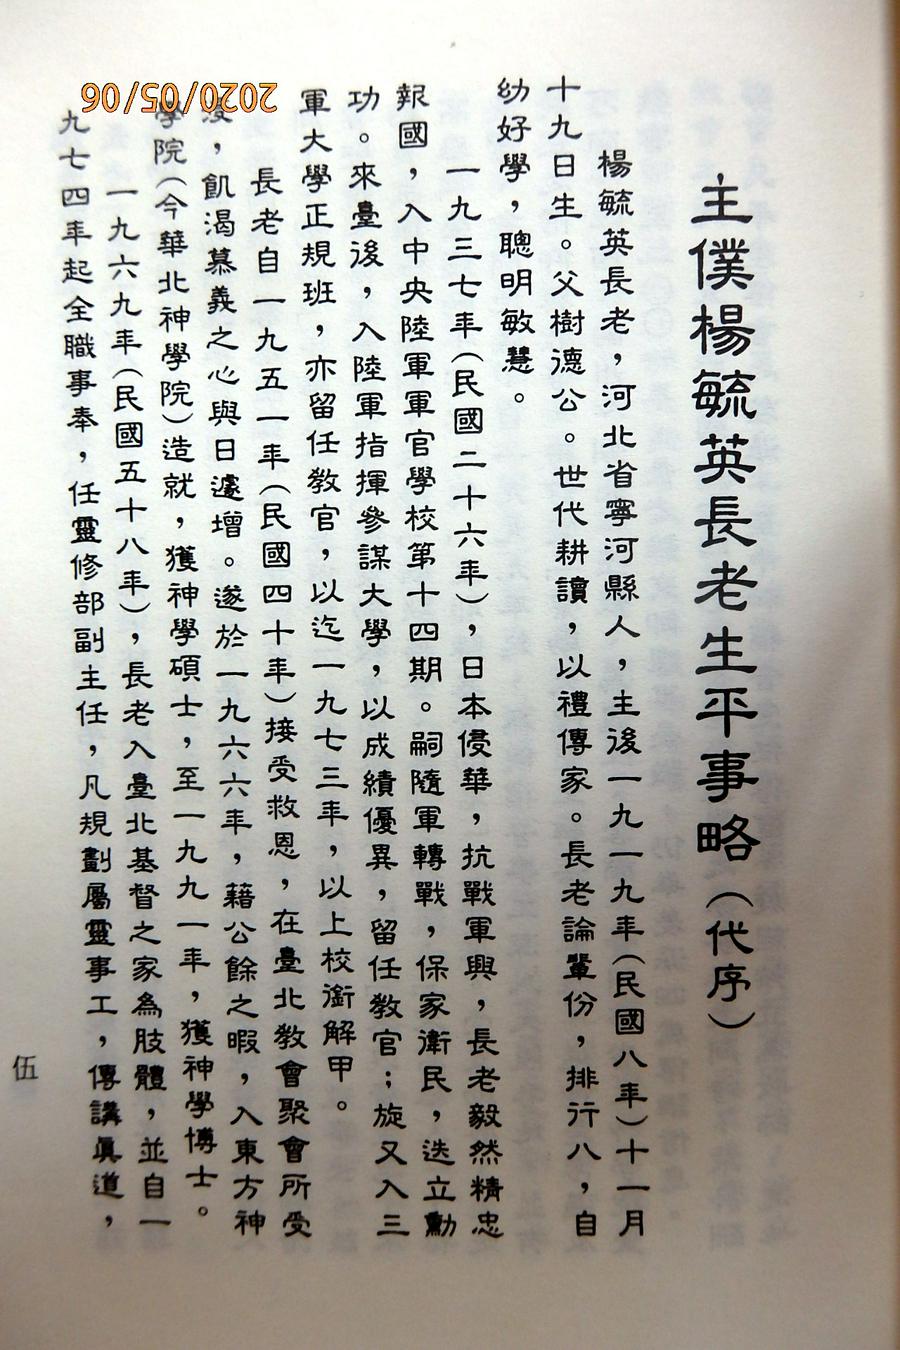 主僕楊毓英長老生平事略（代序）
楊毓英長老，河北省寧河縣人，主後一九一九年（民國八年）十一月
十九日生。父樹德公。世代耕讀，以禮傳家。長老論輩份，排行八，自
幼好學，聰明敏慧。
一九三七年（民國二十六年），日本侵華，抗戰軍興，長老毅然精忠
報國，入中央陸軍軍官學校第十四期。嗣隨軍轉戰，保家衛民，迭立勳
功。來臺後，入陸軍指揮參謀大學，以成績優異，留任教官；旋又入三
軍大學正規班，亦留任教官，以迄一九七三年，以上校銜解甲。
長老自一九五一年（民國四十年）接受救恩，在臺北教會聚會所受
浸，飢渴慕義之心與日遽增。遂於一九六六年，藉公餘之暇，入東方神
學院（今華北神學院）造就，獲神學碩士，至一九九一年，獲神學博士。
一九六九年（民國五十八年），長老入臺北基督之家為肢體，並自一
九七四年起全職事奉，任靈修部副主任，凡規劃屬靈事工，傳講真道，
伍
2020/05/06